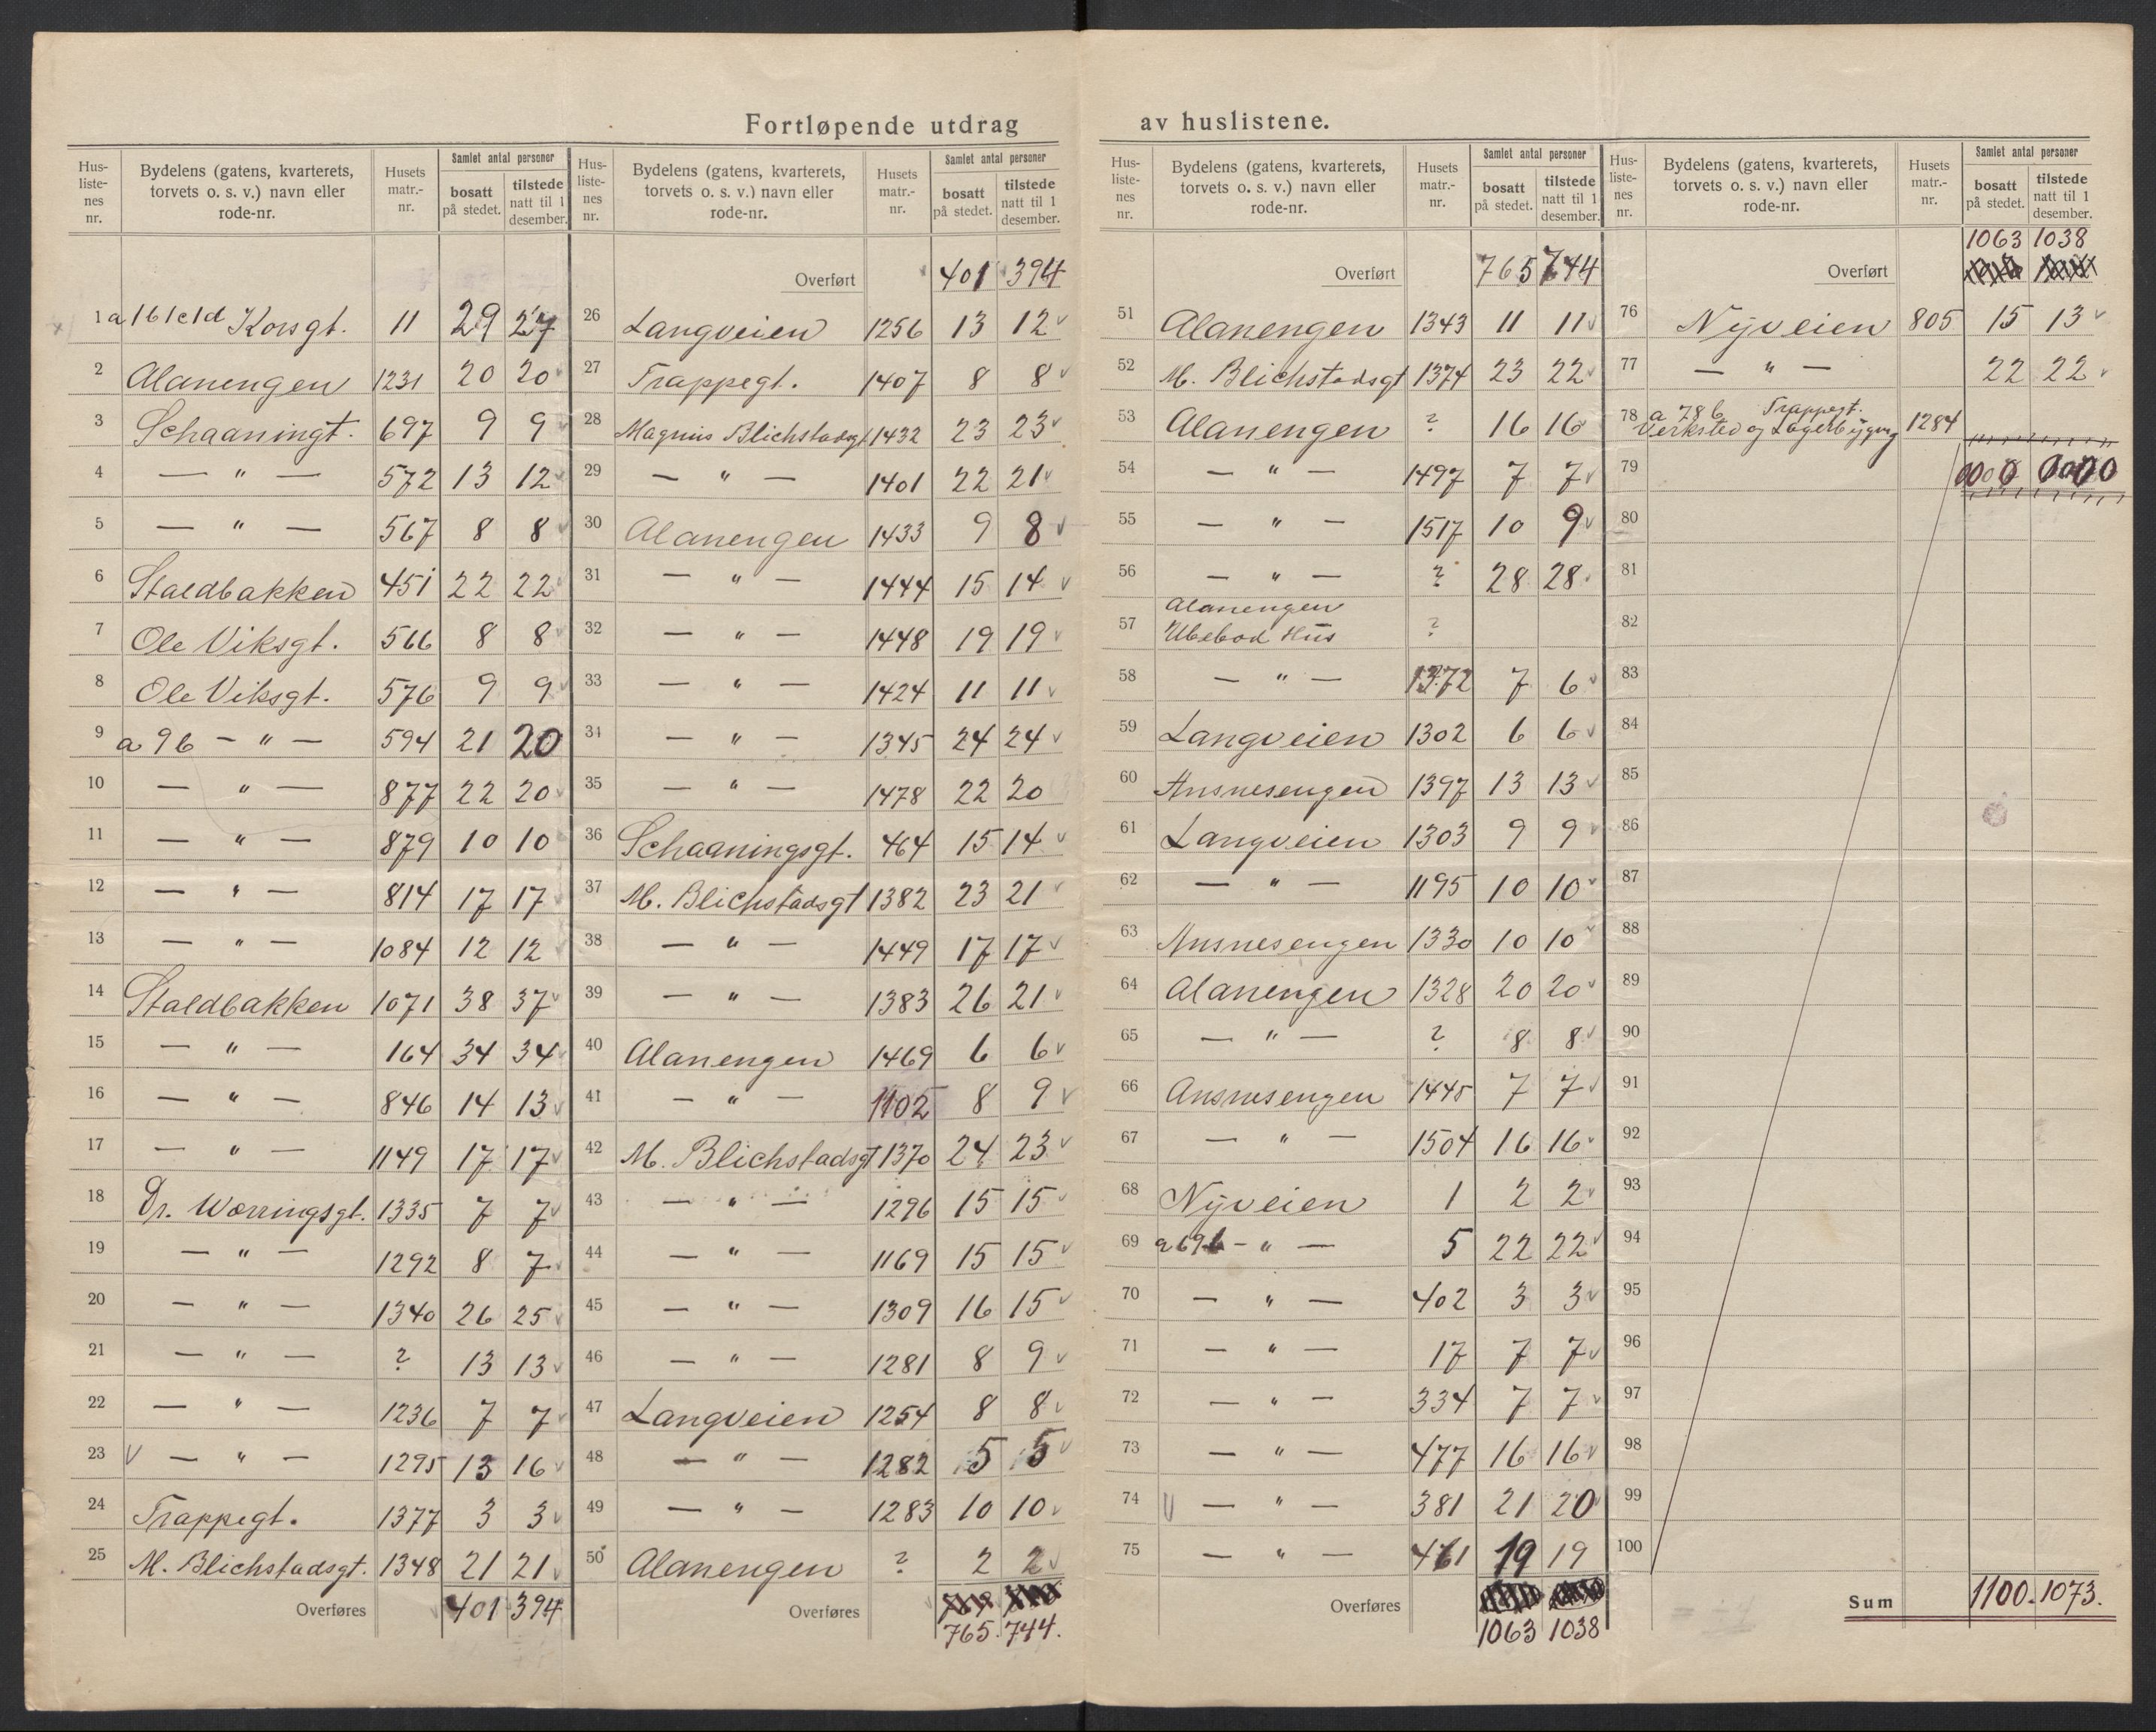 Fortløpende utdrag av huslistene.
Hus-liste-nes nr. | Bydelens (gatens, kvarterets, torvets o. s. v.) navn eller rode-nr. | Husets matr.-nr. | Samlet antal personer bosatt på stedet. | tilstede natt til 1 desember.
1 a 1b 1c 1d Korsgt. 11 29 27
2 Alanengen 1231 20 20
3 Schaaningt. 697 9 9
4 — " — 572 13 12
5 — " — 567 8 8
6 Staldbakken 451 22 22
7 Ole Viksgt. 566 8 8
8 Ole Viksgt. 576 9 9
9 a 9b — " — 594 21 20
10 — " — 877 22 20
11 — " — 879 10 10
12 — " — 814 17 17
13 — " — 1084 12 12
14 Staldbakken 1071 38 37
15 — " — 164 34 34
16 — " — 846 14 13
17 — " — 1149 17 17
18 Dr. Wærringsgt. 1335 7 7
19 — " — 1292 8 7
20 — " — 1340 26 25
21 — " — ? 13 13
22 — " — 1236 7 7
23 V — " — 1295 13 16
24 Trappegt. 1377 3 3
25 M. Blichstadsgt. 1348 21 21
Overføres 401 394
Hus-liste-nes nr. | Bydelens (gatens, kvarterets, torvets o. s. v.) navn eller rode-nr. | Husets matr.-nr. | Samlet antal personer bosatt på stedet. | tilstede natt til 1 desember.
Overført 401 394
26 Langveien 1256 13 12
27 Trappegt. 1407 8 8
28 Magnus Blichstadsgt. 1432 23 23
29 — " — 1401 22 21
30 Alanengen 1433 9 8
31 — " — 1444 15 14
32 — " — 1448 19 19
33 — " — 1424 11 11
34 — " — 1345 24 24
35 — " — 1478 22 20
36 Schaaningsgt. 464 15 14
37 M. Blichstadsgt 1382 23 21
38 — " — 1449 17 17
39 — " — 1383 26 21
40 Alanengen 1469 6 6
41 — " — 1102 8 9
42 M. Blichstadsgt 1370 24 23
43 — " — 1296 15 15
44 — " — 1169 15 15
45 — " — 1309 16 15
46 — " — 1281 8 9
47 Langveien 1254 8 8
48 — " — 1282 5 5
49 — " — 1283 10 10
50 Alanengen ? 2 2
Overføres
765. 744.
Hus-liste-nes nr. | Bydelens (gatens, kvarterets, torvets o. s. v.) navn eller rode-nr. | Husets matr.-nr. | Samlet antal personer bosatt på stedet. | tilstede natt til 1 desember.
Overført 765 744
51 Alanengen 1343 11 11
52 M. Blichstadsgt 1374 23 22
53 Alanengen ? 16 16
54 — " — 1497 7 7
55 — " — 1517 10 9
56 — " — ? 28 28
57 Alanengen Ubebod Hus ?
58 — " — 1372 7 6
59 Langveien 1302 6 6
60 Ansnesengen 1397 13 13
61 Langveien 1303 9 9
62 — " — 1195 10 10
63 Ansnesengen 1330 10 10
64 Alanengen 1328 20 20
65 — " — ? 8 8
66 Ansnesengen 1445 7 7
67 — " — 1504 16 16
68 Nyveien 1 2 2
69 a 69b — " — 5 22 22
70 — " — 402 3 3
71 — " — 17 7 7
72 — " — 334 7 7
73 — " — 477 16 16
74 V — " — 381 21 20
75 — " — 461 19 19
Overføres
1063 1038
Hus-liste-nes nr. | Bydelens (gatens, kvarterets, torvets o. s. v.) navn eller rode-nr. | Husets matr.-nr. | Samlet antal personer bosatt på stedet. | tilstede natt til 1 desember.
1063 1038
Overført
76 Nyveien 805 15 13
77 — " — 22 22
78 a 78b Trappegt. Verksted og Lagerbygng 1284
79
80
81
82
83
84
85
86
87
88
89
90
91
92
93
94
95
96
97
98
99
100
Sum 1100. 1073.